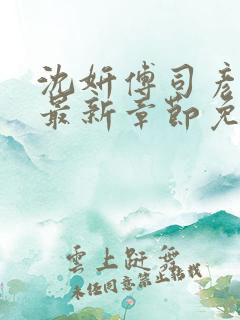 沈妍傅司彦
最新章节免
雲上跹舞
未经同意禁止转载